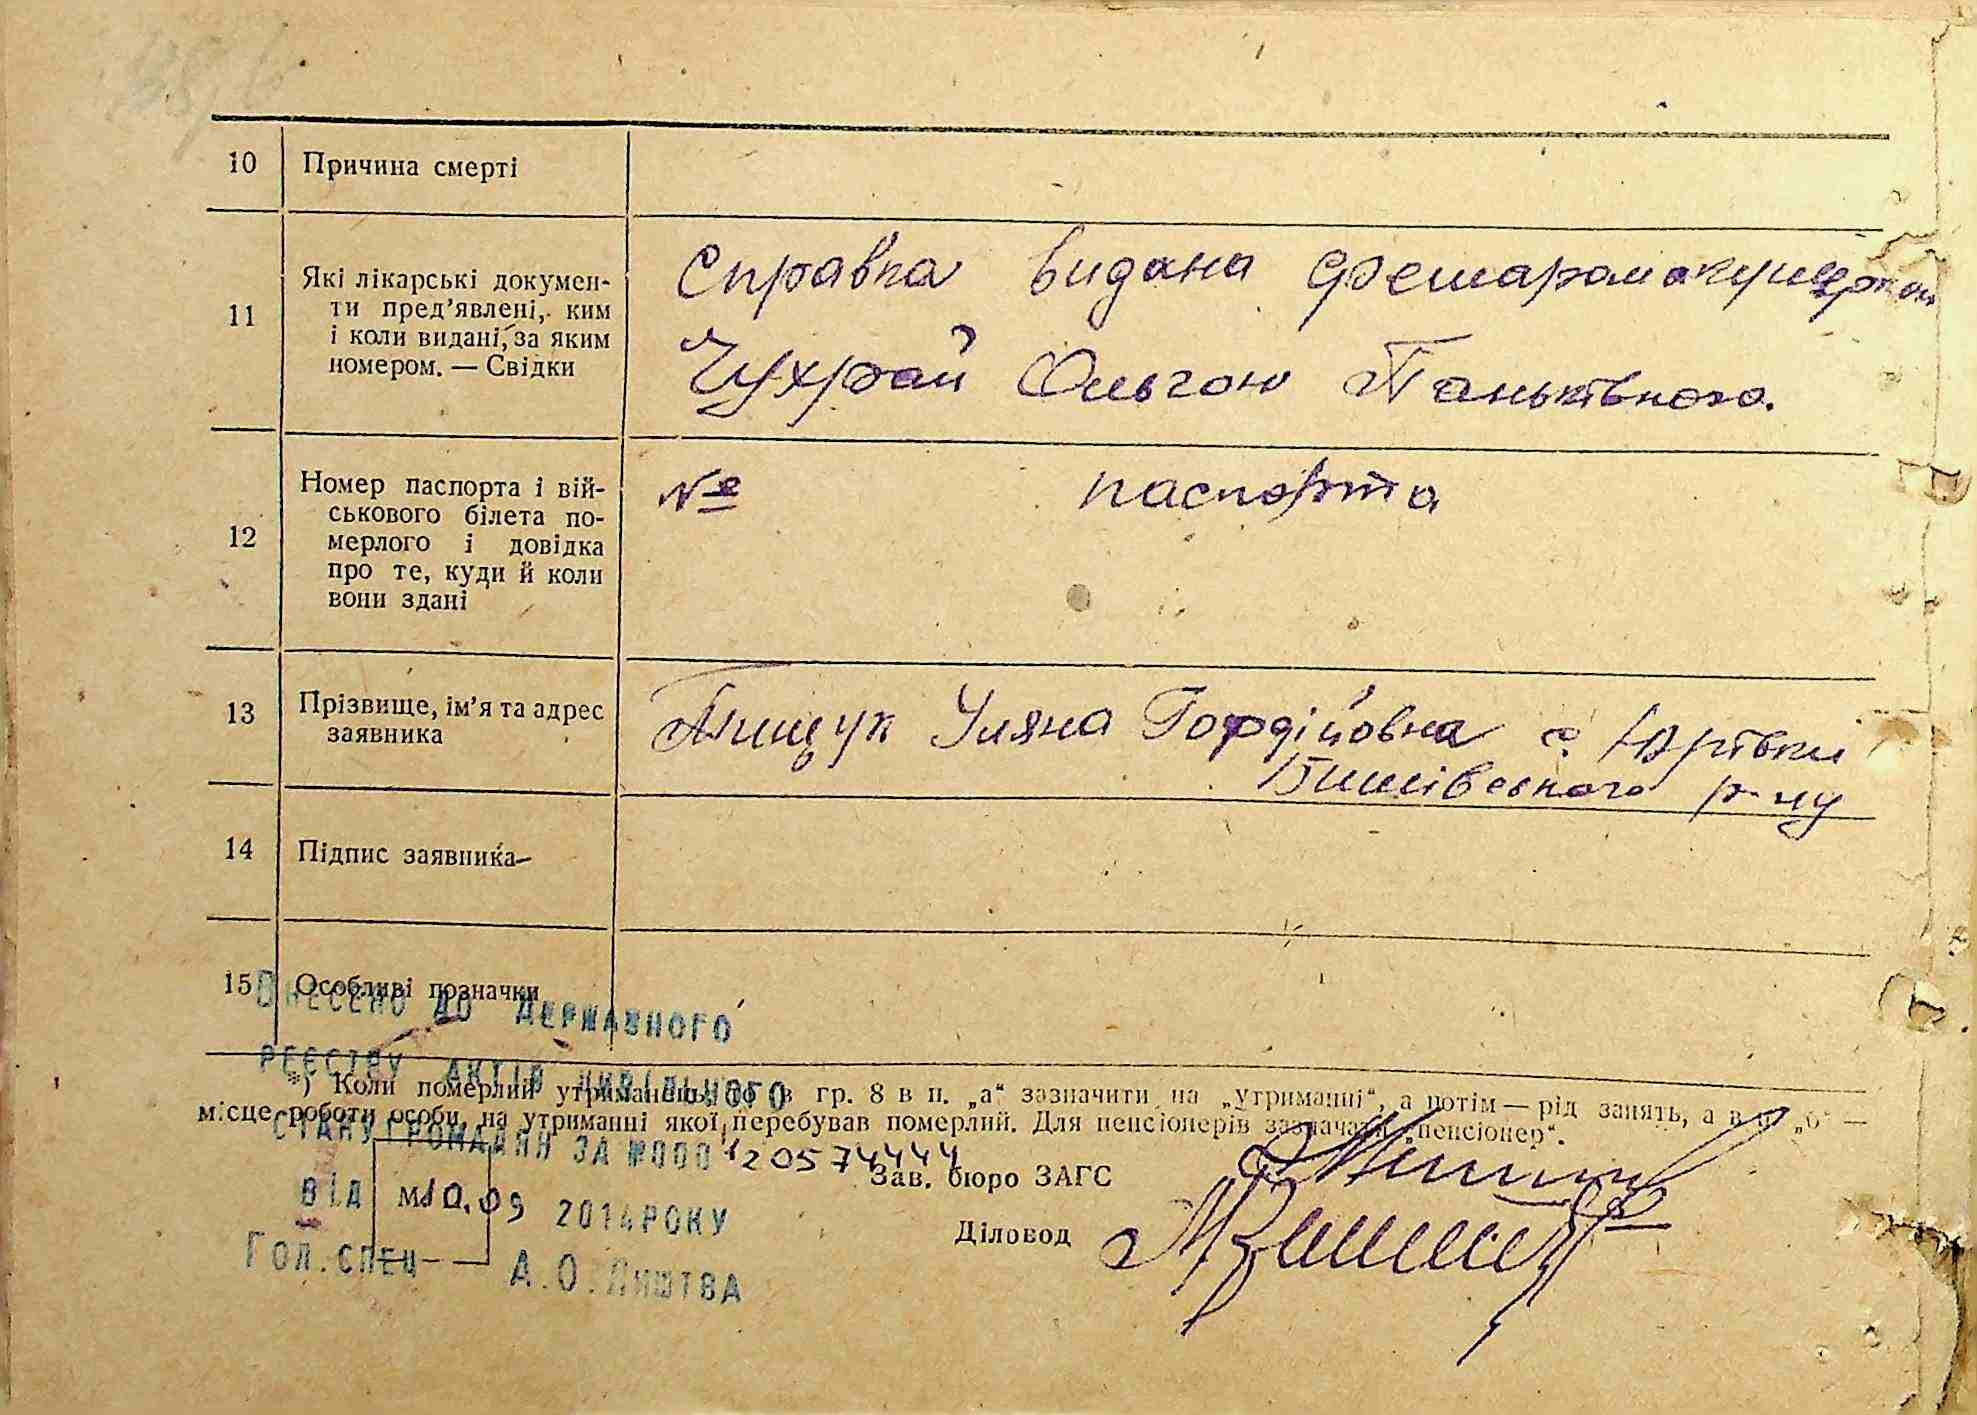 10 Причина смерті
11 Які лікарські докумен-
ти пред’явлені, ким
і коли видані, за яким
номером. — Свідки
Справка видана
Чухрай Ольгою Паньківною.
12 Номер паспорта і вій-
ськового білета по-
мерлого і довідка
про те, куди й коли
вони здані
№ паспорта
13 Прізвище, ім’я та адрес
заявника
Пищук Уляна Гордіївовна с. Юрівки
р-ну
14 Підпис заявника
15 Особливі позначки
Внесено до Державного
реєстру актів цивільного
*) Коли померлий утриманець, то в гр. 8 в п. „а“ зазначити на „утриманні“, а потім — рід занять, а в п. „б“ —
місце роботи особи, на утриманні якої перебував померлий. Для пенсіонерів зазначати „пенсіонер“.
стану громадян за №000120574444
Зав. бюро ЗАГС
від 10.09 2014 року
М.
Діловод
Гол. спец А.О. Лиштва